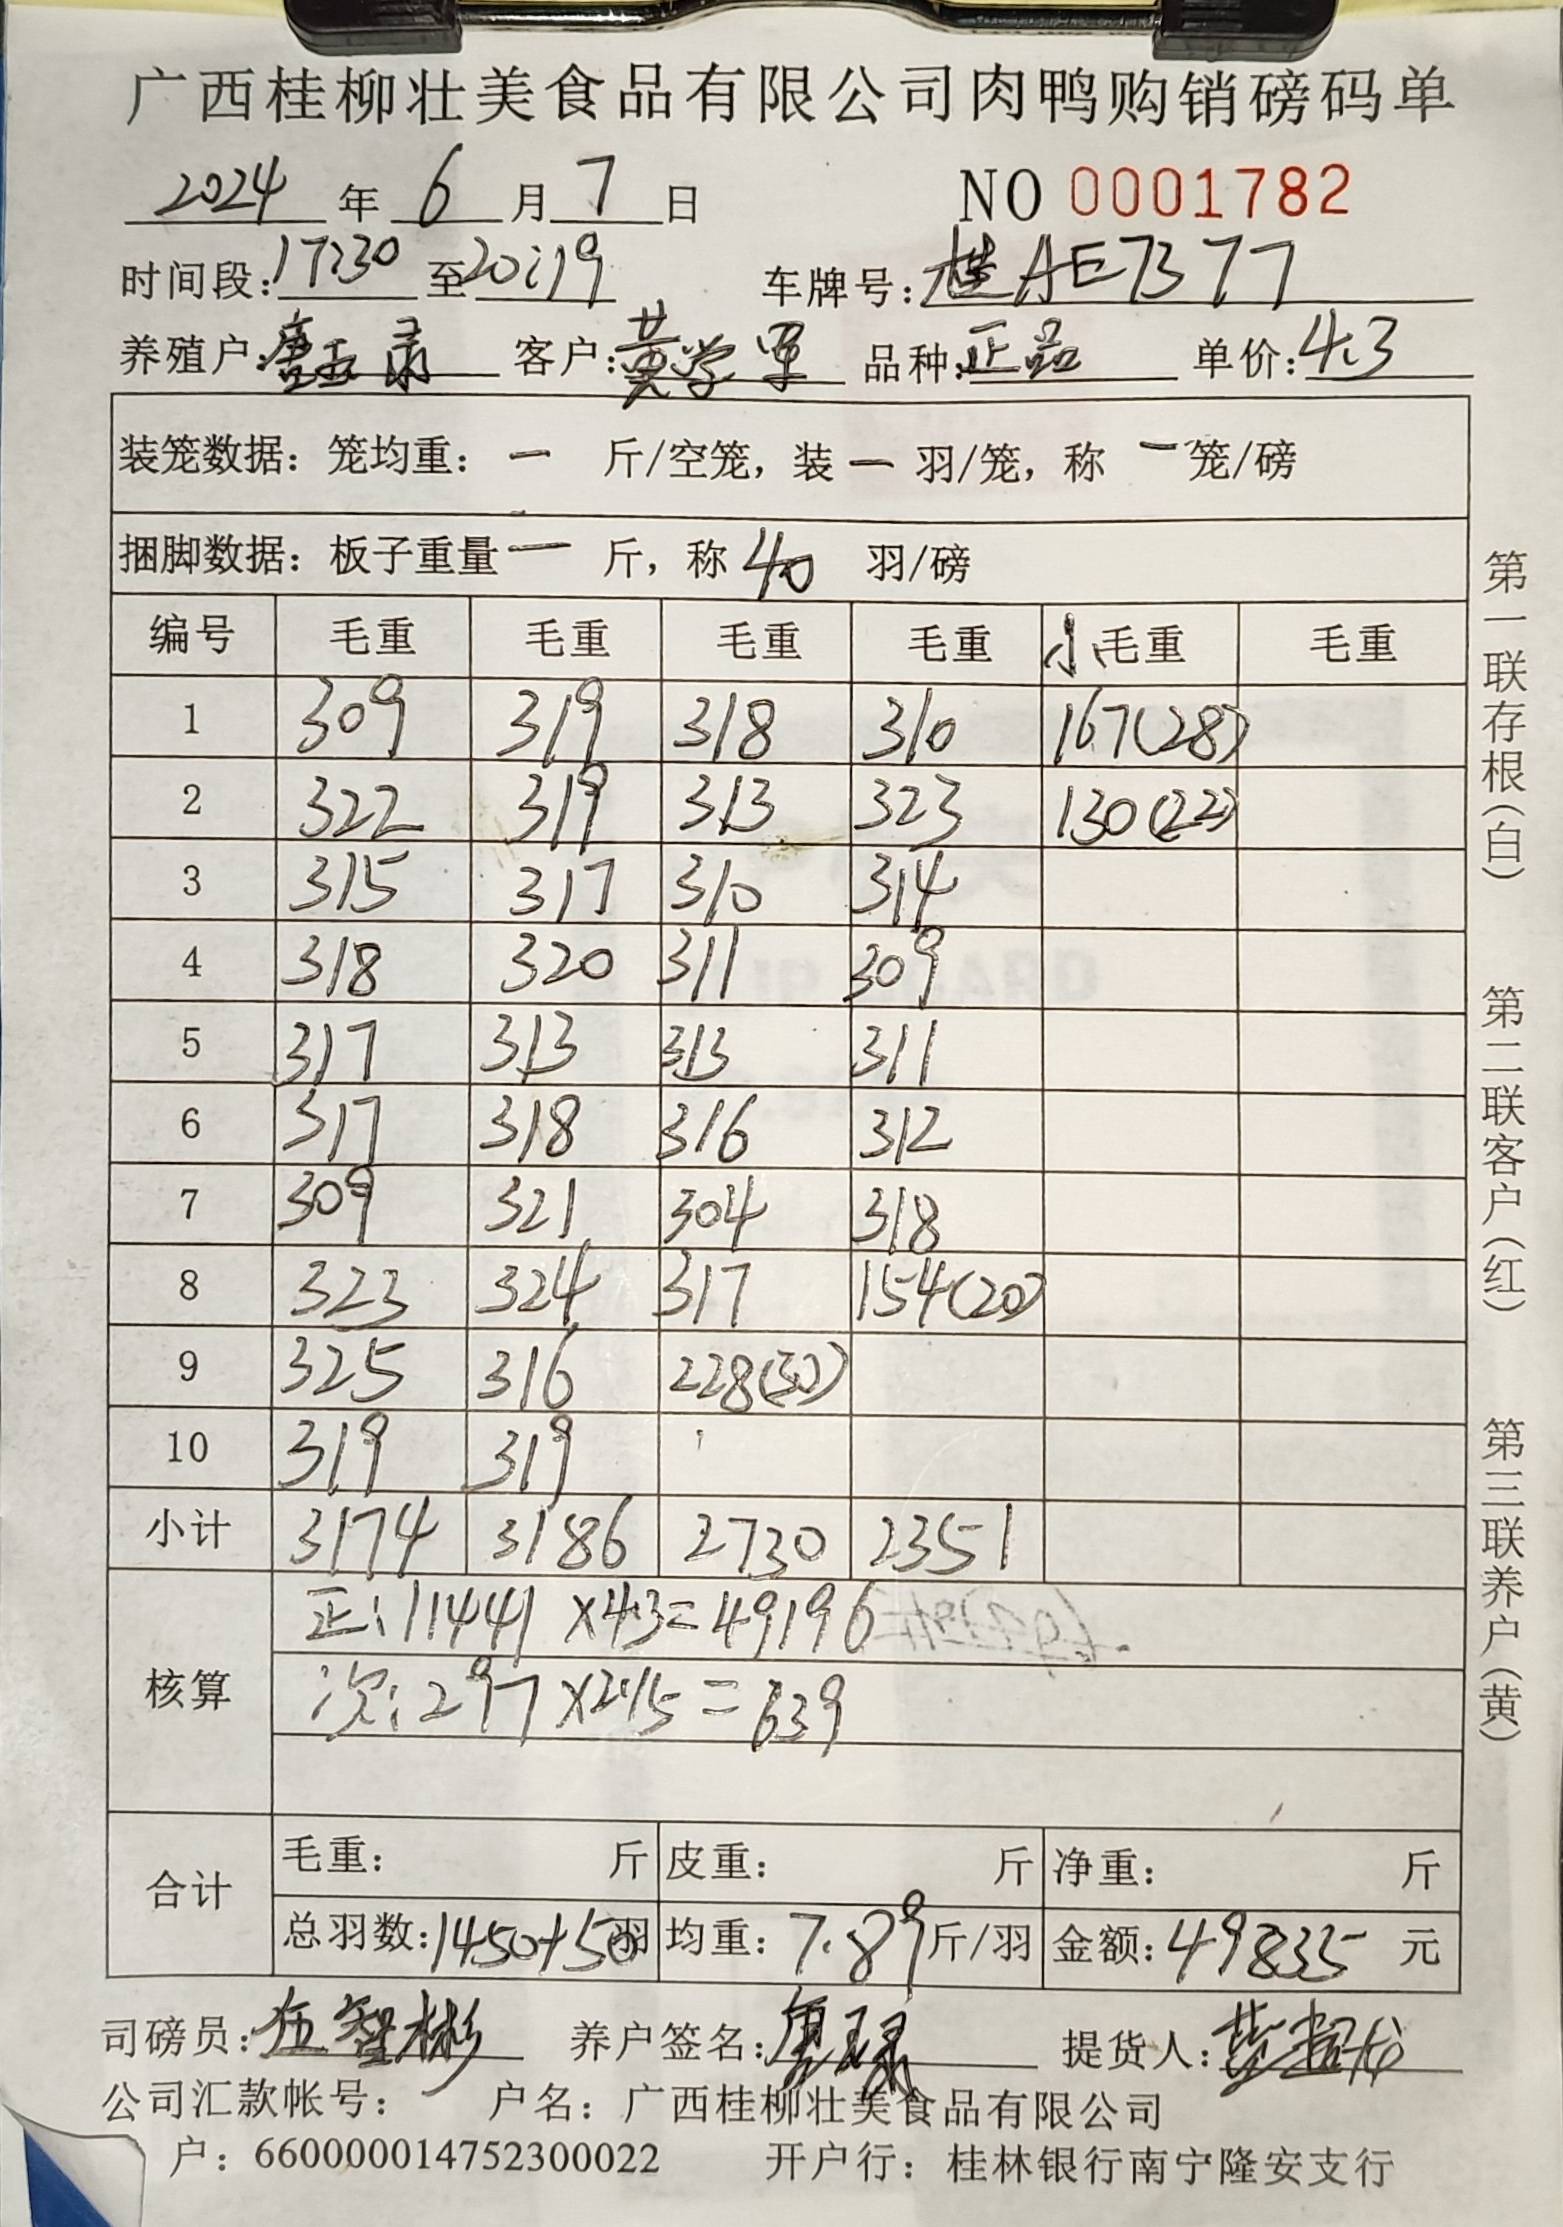 广西桂柳壮美食品有限公司肉鸭购销磅码单
2024 年 6 月 7 日 NO 0001782
时间段:17:30 至20:19 车牌号:桂AE7377
养殖户: 客户:黄学军 品种:正品 单价:4.3
装笼数据: 笼均重: 一 斤/空笼, 装 一 羽/笼, 称 一 笼/磅
捆脚数据: 板子重量 一 斤, 称 40 羽/磅
编号 毛重 毛重 毛重 毛重 小毛重 毛重
1 309 319 318 310 167(28)
2 322 319 313 323 130(22)
3 315 317 310 314
4 318 320 311 309
5 317 313 313 311
6 317 318 316 312
7 309 321 304 318
8 323 324 317 154(20)
9 325 316 228(30)
10 319 319
小计 3174 3186 2730 2351
核算 正:11441×4.3=49196
次:297×2.15=639
合计 毛重: 斤 皮重: 斤 净重: 斤
总羽数:1450+50羽 均重: 7.89斤/羽 金额:49835 元
司磅员:伍智彬 养户签名: 提货人:
公司汇款帐号: 户名: 广西桂柳壮美食品有限公司
户: 660000014752300022 开户行: 桂林银行南宁隆安支行
第一联存根(白) 第二联客户(红) 第三联养户(黄)